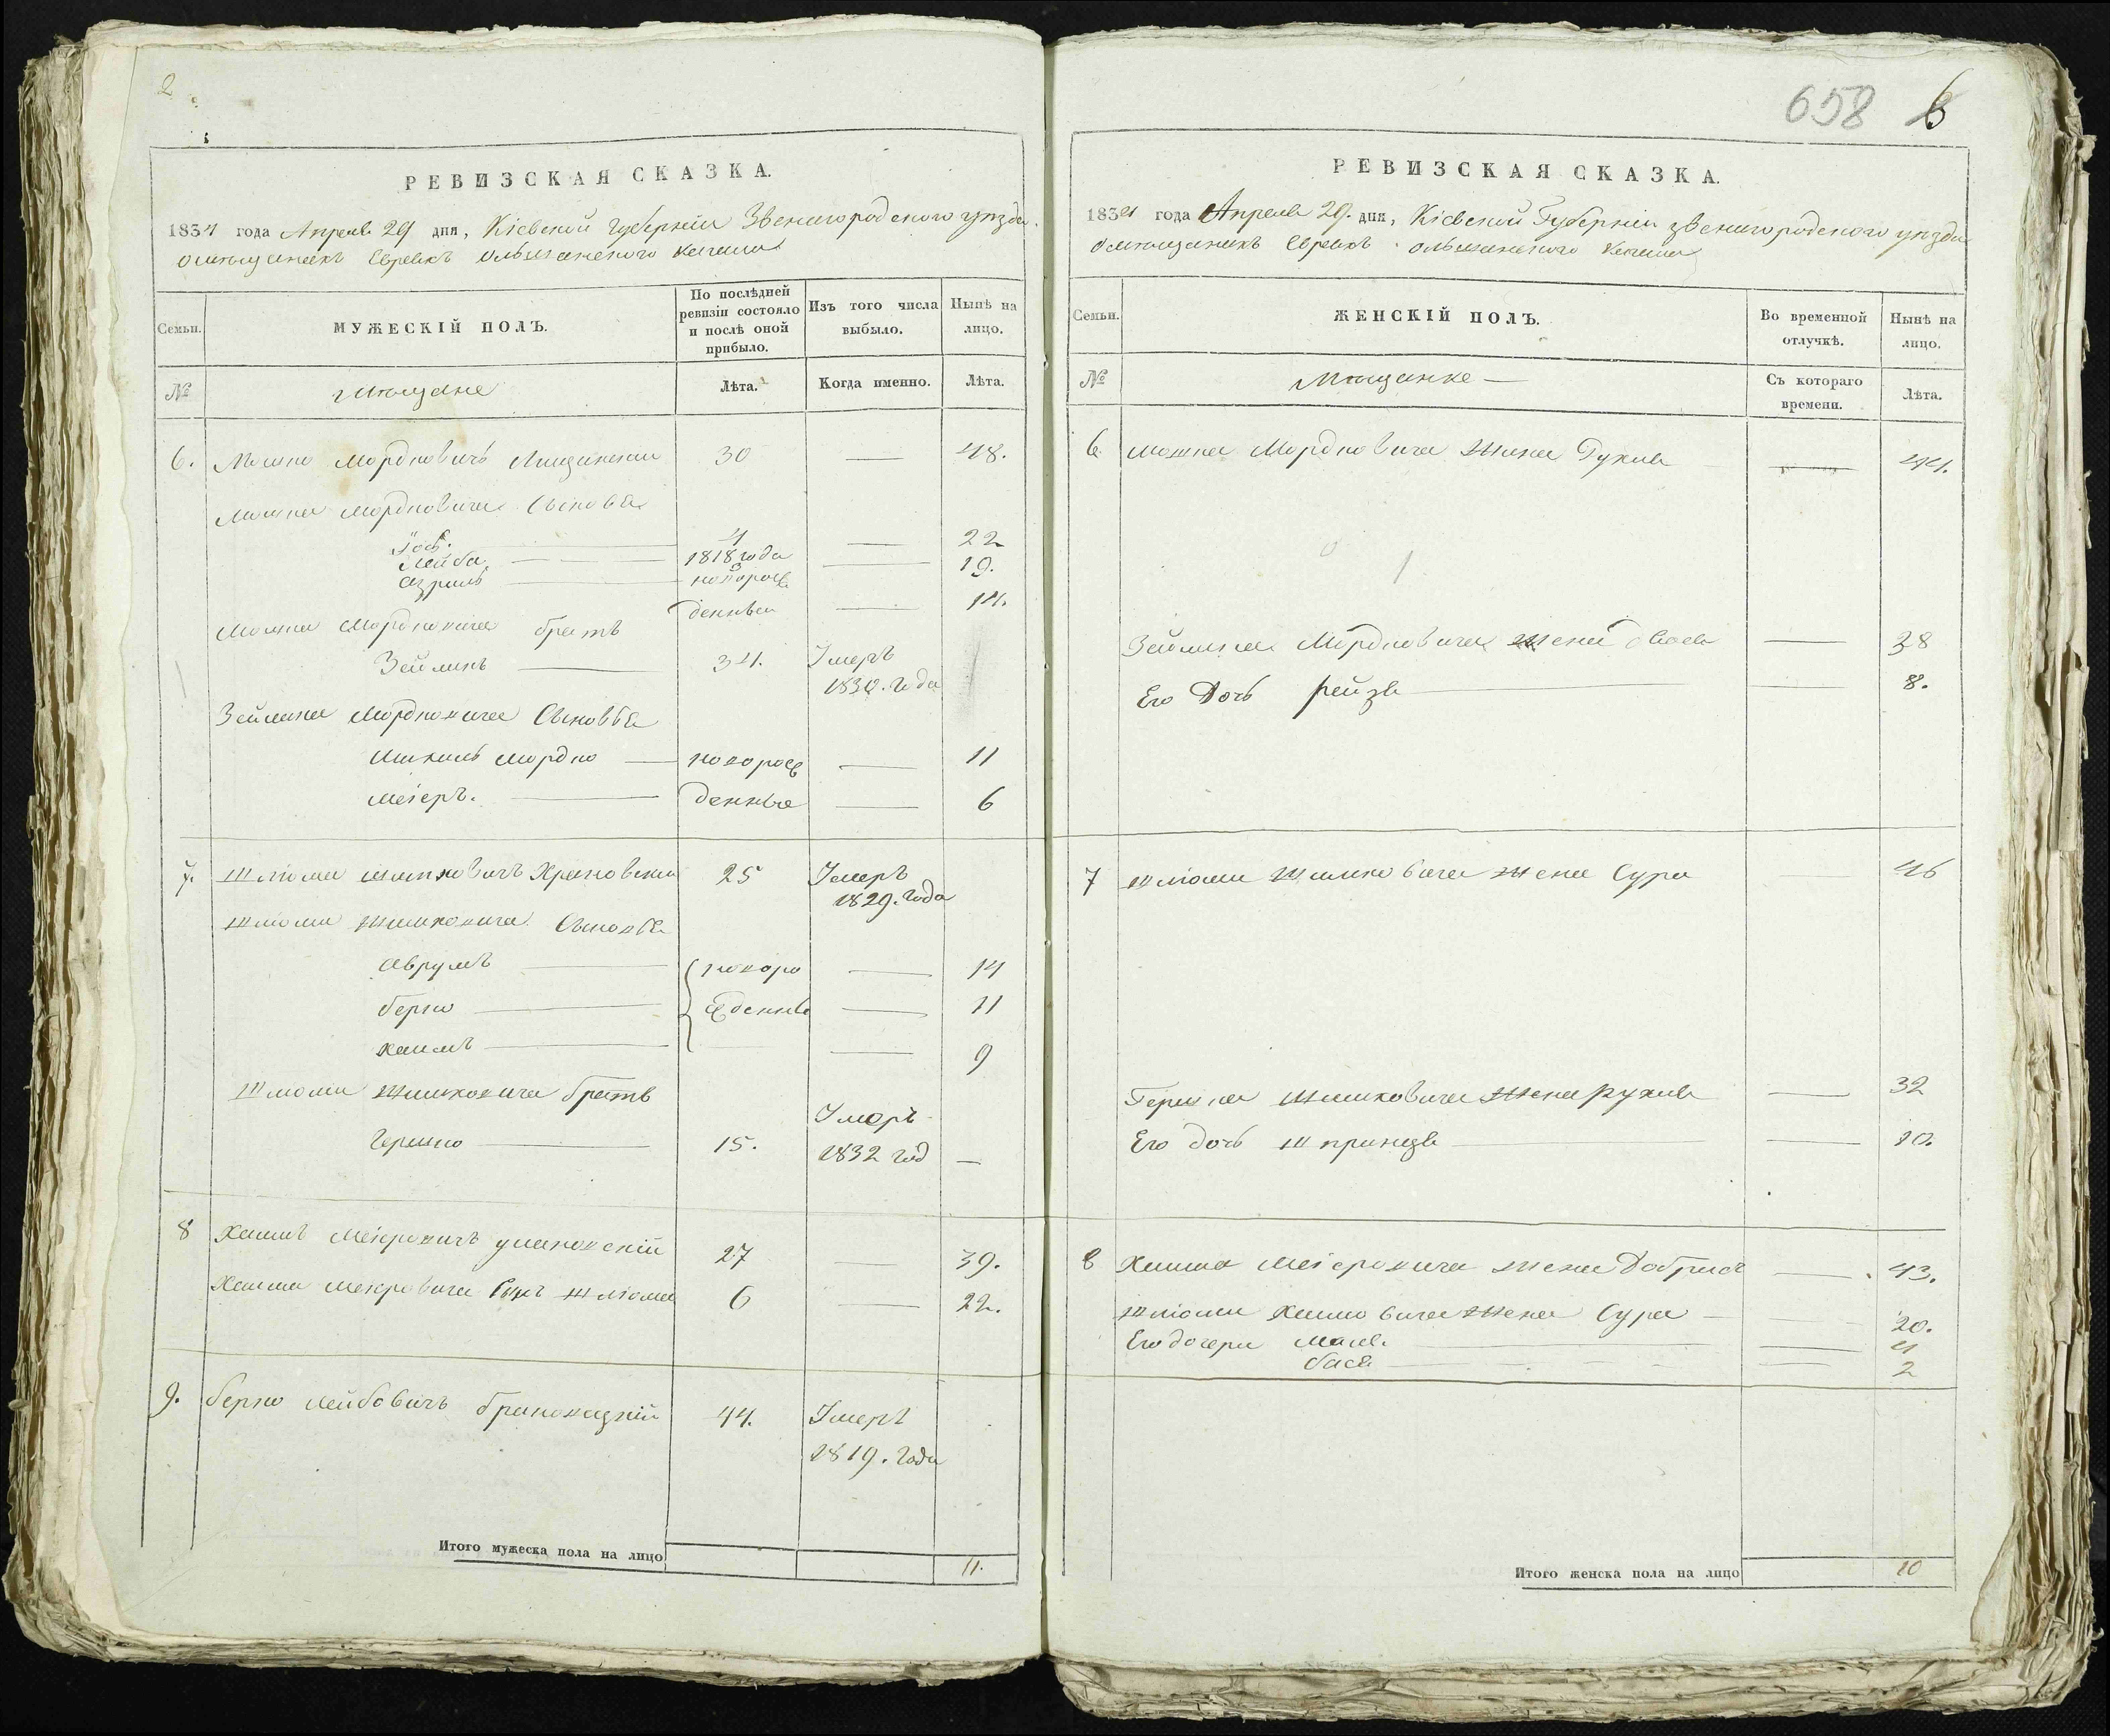 2
РЕВИЗСКАЯ СКАЗКА.
1834 года Апреля 29 дня, Кіевской губерніи Звенигородского уезда
омещанехъ Евреяхъ Ольшанского кагала
Семьи.
МУЖЕСКІЙ ПОЛЪ.
По послѣдней ревизіи состояло и послѣ оной прибыло.
Изъ того числа выбыло.
Нынѣ на лицо.
№
мещане
Лѣта.
Когда именно.
Лѣта.
6. Мошко Мордковичъ 30 — 48.
Мошка Мордковича Сыновья
Іось. 4 — 22
Лейба 1818 года — 19.
Азриль новорож
денные — 14.
Мошка Мордковича братъ
Зейликъ 34. Умеръ
1830. Года
Зейлика Мордковича Сыновья
Мордко новорож — 11
Меіеръ. денные — 6
7. Шліома Шмиковичъ 25 Умеръ
1829. Года
Шліомы Шмиковича Сыновья
Аврумъ новоро — 14
Берко жденные — 11
Хаимъ — 9
Шліомы Шмиковича братъ
Умеръ
Гершко 15. 1832 год —
8 Хаимъ Меіеровичъ умановскій 27 — 39.
Хаима Меіеровича Сынъ Шліома 6 — 22.
9. Берко Лейбовичъ 44. Умеръ
1819. Года
Итого мужеска пола на лицо 11.
658 6
РЕВИЗСКАЯ СКАЗКА.
1834 года Апреля 29. дня, Кіевской Губерніи Звенигородского уезда
омещанкахъ Евреяхъ Ольшанского Кагала
Семьи.
ЖЕНСКІЙ ПОЛЪ.
Во временной отлучкѣ.
Нынѣ на лицо.
№
Мещанке —
Съ котораго времени.
Лѣта.
6 Мошка Мордковича Жена Рухля — 44.
Зейлика Мордковича жена — 38
Его Дочь рейзя — 8.
7 Шліомы Шмиковича жена Сура — 46
Гершка Шмиковича Жена Рухля — 32
Его дочь Шпринця — 10.
8 Хаима Меіеровича жена Добрись — 43.
Шліомы Хаимовича Жена Сура — 20.
Его дочери Маля — 4
бася — 2
Итого женска пола на лицо 10